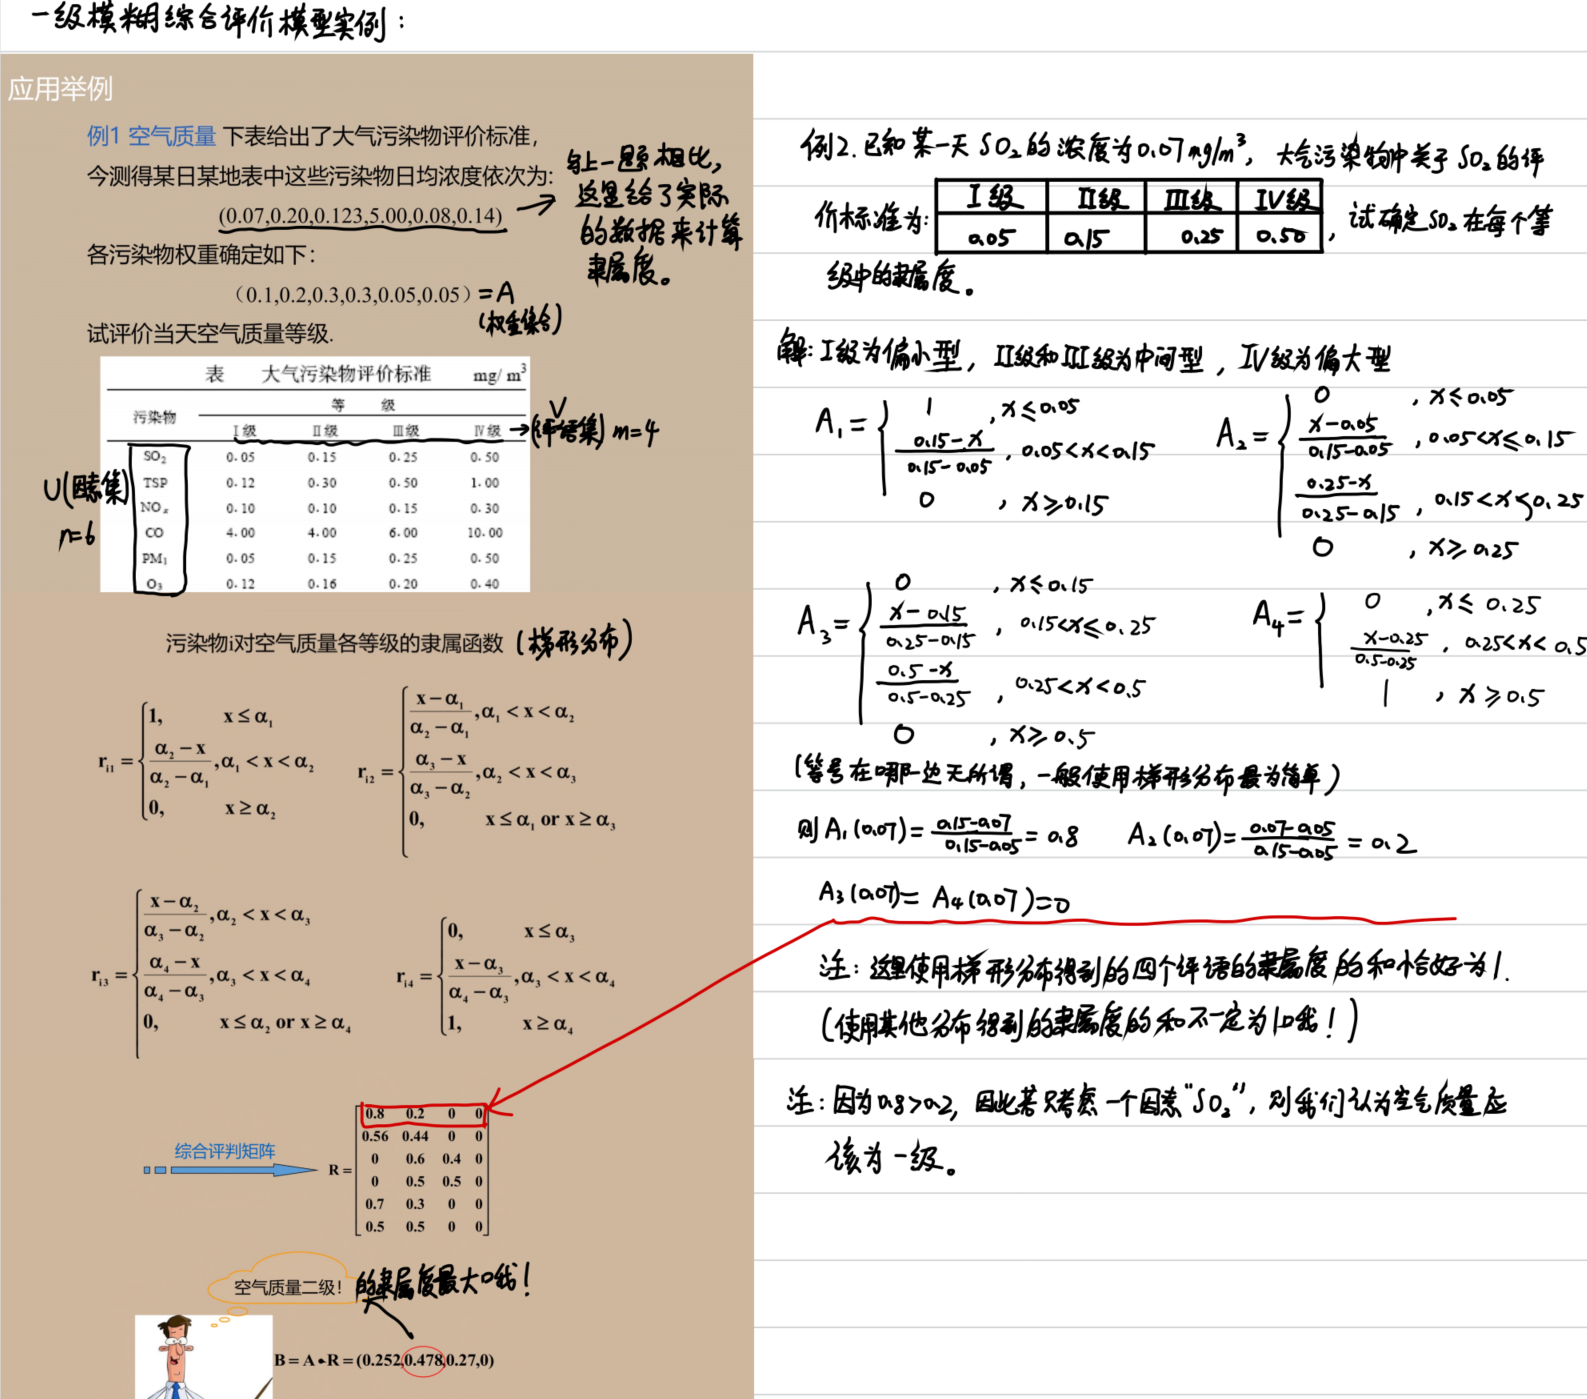 一级模糊综合评价模型实例:
应用举例
例1 空气质量 下表给出了大气污染物评价标准,
今测得某日某地表中这些污染物日均浓度依次为:
(0.07,0.20,0.123,5.00,0.08,0.14)
各污染物权重确定如下:
(0.1,0.2,0.3,0.3,0.05,0.05) = A
(权重集合)
试评价当天空气质量等级.
与上一题相比,
这里给了实际
的数据来计算
隶属度。
表 大气污染物评价标准 mg/m³
污染物 等 级
Ⅰ级 Ⅱ级 Ⅲ级 Ⅳ级
V
(评语集) m=4
SO₂ 0.05 0.15 0.25 0.50
TSP 0.12 0.30 0.50 1.00
NOₓ 0.10 0.10 0.15 0.30
CO 4.00 4.00 6.00 10.00
PM₁ 0.05 0.15 0.25 0.50
O₃ 0.12 0.16 0.20 0.40
U(因素集)
n=6
污染物i对空气质量各等级的隶属函数 (梯形分布)
rᵢ₁ = { 1, x ≤ α₁
(α₂ − x)/(α₂ − α₁), α₁ < x < α₂
0, x ≥ α₂
rᵢ₂ = { (x − α₁)/(α₂ − α₁), α₁ < x < α₂
(α₃ − x)/(α₃ − α₂), α₂ < x < α₃
0, x ≤ α₁ or x ≥ α₃
rᵢ₃ = { (x − α₂)/(α₃ − α₂), α₂ < x < α₃
(α₄ − x)/(α₄ − α₃), α₃ < x < α₄
0, x ≤ α₂ or x ≥ α₄
rᵢ₄ = { 0, x ≤ α₃
(x − α₃)/(α₄ − α₃), α₃ < x < α₄
1, x ≥ α₄
综合评判矩阵
R =
0.8 0.2 0 0
0.56 0.44 0 0
0 0.6 0.4 0
0 0.5 0.5 0
0.7 0.3 0 0
0.5 0.5 0 0
空气质量二级! 的隶属度最大哦!
B = A • R = (0.252,0.478,0.27,0)
例2. 已知某一天SO₂的浓度为0.07mg/m³, 大气污染物中关于SO₂的评
价标准为: , 试确定SO₂在每个等
Ⅰ级 Ⅱ级 Ⅲ级 Ⅳ级
0.05 0.15 0.25 0.50
级中的隶属度。
解: Ⅰ级为偏小型, Ⅱ级和Ⅲ级为中间型, Ⅳ级为偏大型
A₁ = { 1 , x≤0.05
(0.15−x)/(0.15−0.05) , 0.05<x<0.15
0 , x≥0.15
A₂ = { 0 , x≤0.05
(x−0.05)/(0.15−0.05) , 0.05<x≤0.15
(0.25−x)/(0.25−0.15) , 0.15<x≤0.25
0 , x≥0.25
A₃ = { 0 , x≤0.15
(x−0.15)/(0.25−0.15) , 0.15<x≤0.25
(0.5−x)/(0.5−0.25) , 0.25<x<0.5
0 , x≥0.5
A₄ = { 0 , x≤0.25
(x−0.25)/(0.5−0.25) , 0.25<x<0.5
1 , x≥0.5
(等号在哪一边无所谓, 一般使用梯形分布最为简单)
则A₁(0.07) = (0.15−0.07)/(0.15−0.05) = 0.8 A₂(0.07) = (0.07−0.05)/(0.15−0.05) = 0.2
A₃(0.07) = A₄(0.07) = 0
注: 这里使用梯形分布得到的四个评语的隶属度的和恰好为1.
(使用其他分布得到的隶属度的和不一定为1哦!)
注: 因为0.8>0.2, 因此若只考虑一个因素“SO₂”, 则我们认为空气质量应
该为一级。